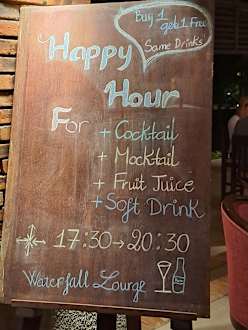 Buy 1
get 1 Free
Same Drinks
Happy
Hour
For
+ Cocktail
+ Mocktail
+ Fruit Juice
+ Soft Drink
17:30→20:30
Waterfall Lounge